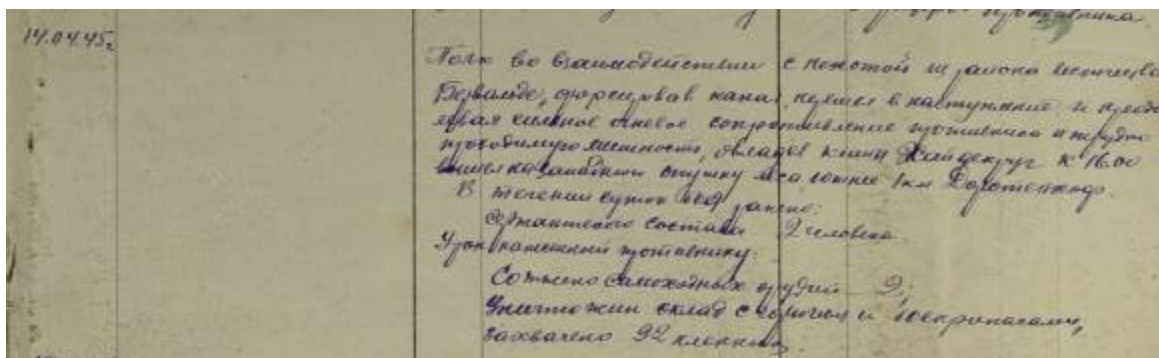 противника
14.04.45г.
Полк во взаимодействии с пехотой из района лесничество
форсировав канал, перешел в наступление и преодо
левая сильное огневое сопротивление противника и трудно
проходимую местность, овладев Хайдекруг к 16.00
вышел на западную опушку леса южнее 1 км
В течении суток ранено:
Сержантского состава 2 человека
Урон нанесенный противнику:
Сожжено самоходных орудий – 2;
Уничтожен склад с горючим и боеприпасами,
захвачено 32 пленных.